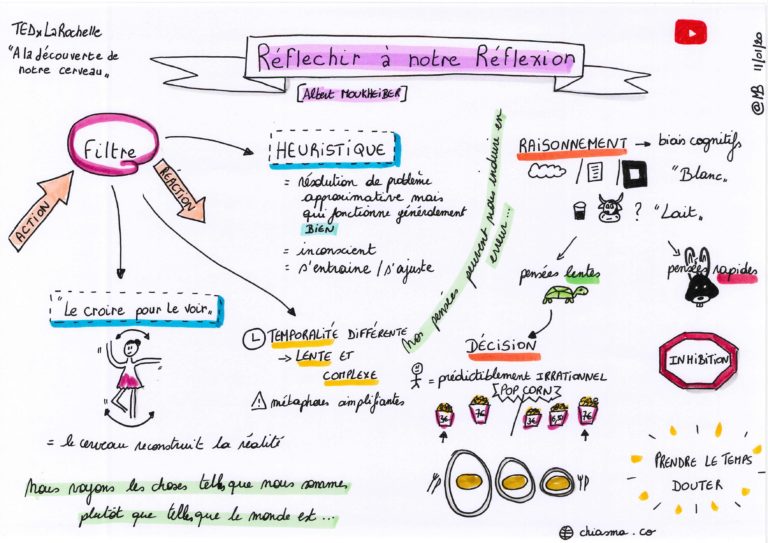 TEDxLaRochelle
"A la découverte de
notre cerveau"
Réflechir à notre Réflexion
[Albert MOUKHEIBER]
@MB 11/01/20
Filtre
ACTION
RÉACTION
HEURISTIQUE
= résolution de problème
approximative mais
qui fonctionne généralement
BIEN
= inconscient
= s'entraine / s'ajuste
Nos pensées peuvent nous induire en
erreur...
RAISONNEMENT → biais cognitifs
/ / "Blanc"
? "Lait"
pensées lentes
pensées rapides
"Le croire pour le voir"
= le cerveau reconstruit la réalité
TEMPORALITÉ DIFFÉRENTE
→ LENTE ET
COMPLEXE
métaphores simplifiantes
DÉCISION
= prédictiblement IRRATIONNEL
[POP CORN]
3€ 7€ 3€ 6,50 7€
INHIBITION
PRENDRE LE TEMPS
DOUTER
Nous voyons les choses telles que nous sommes
plutôt que telles que le monde est...
chiasma.co